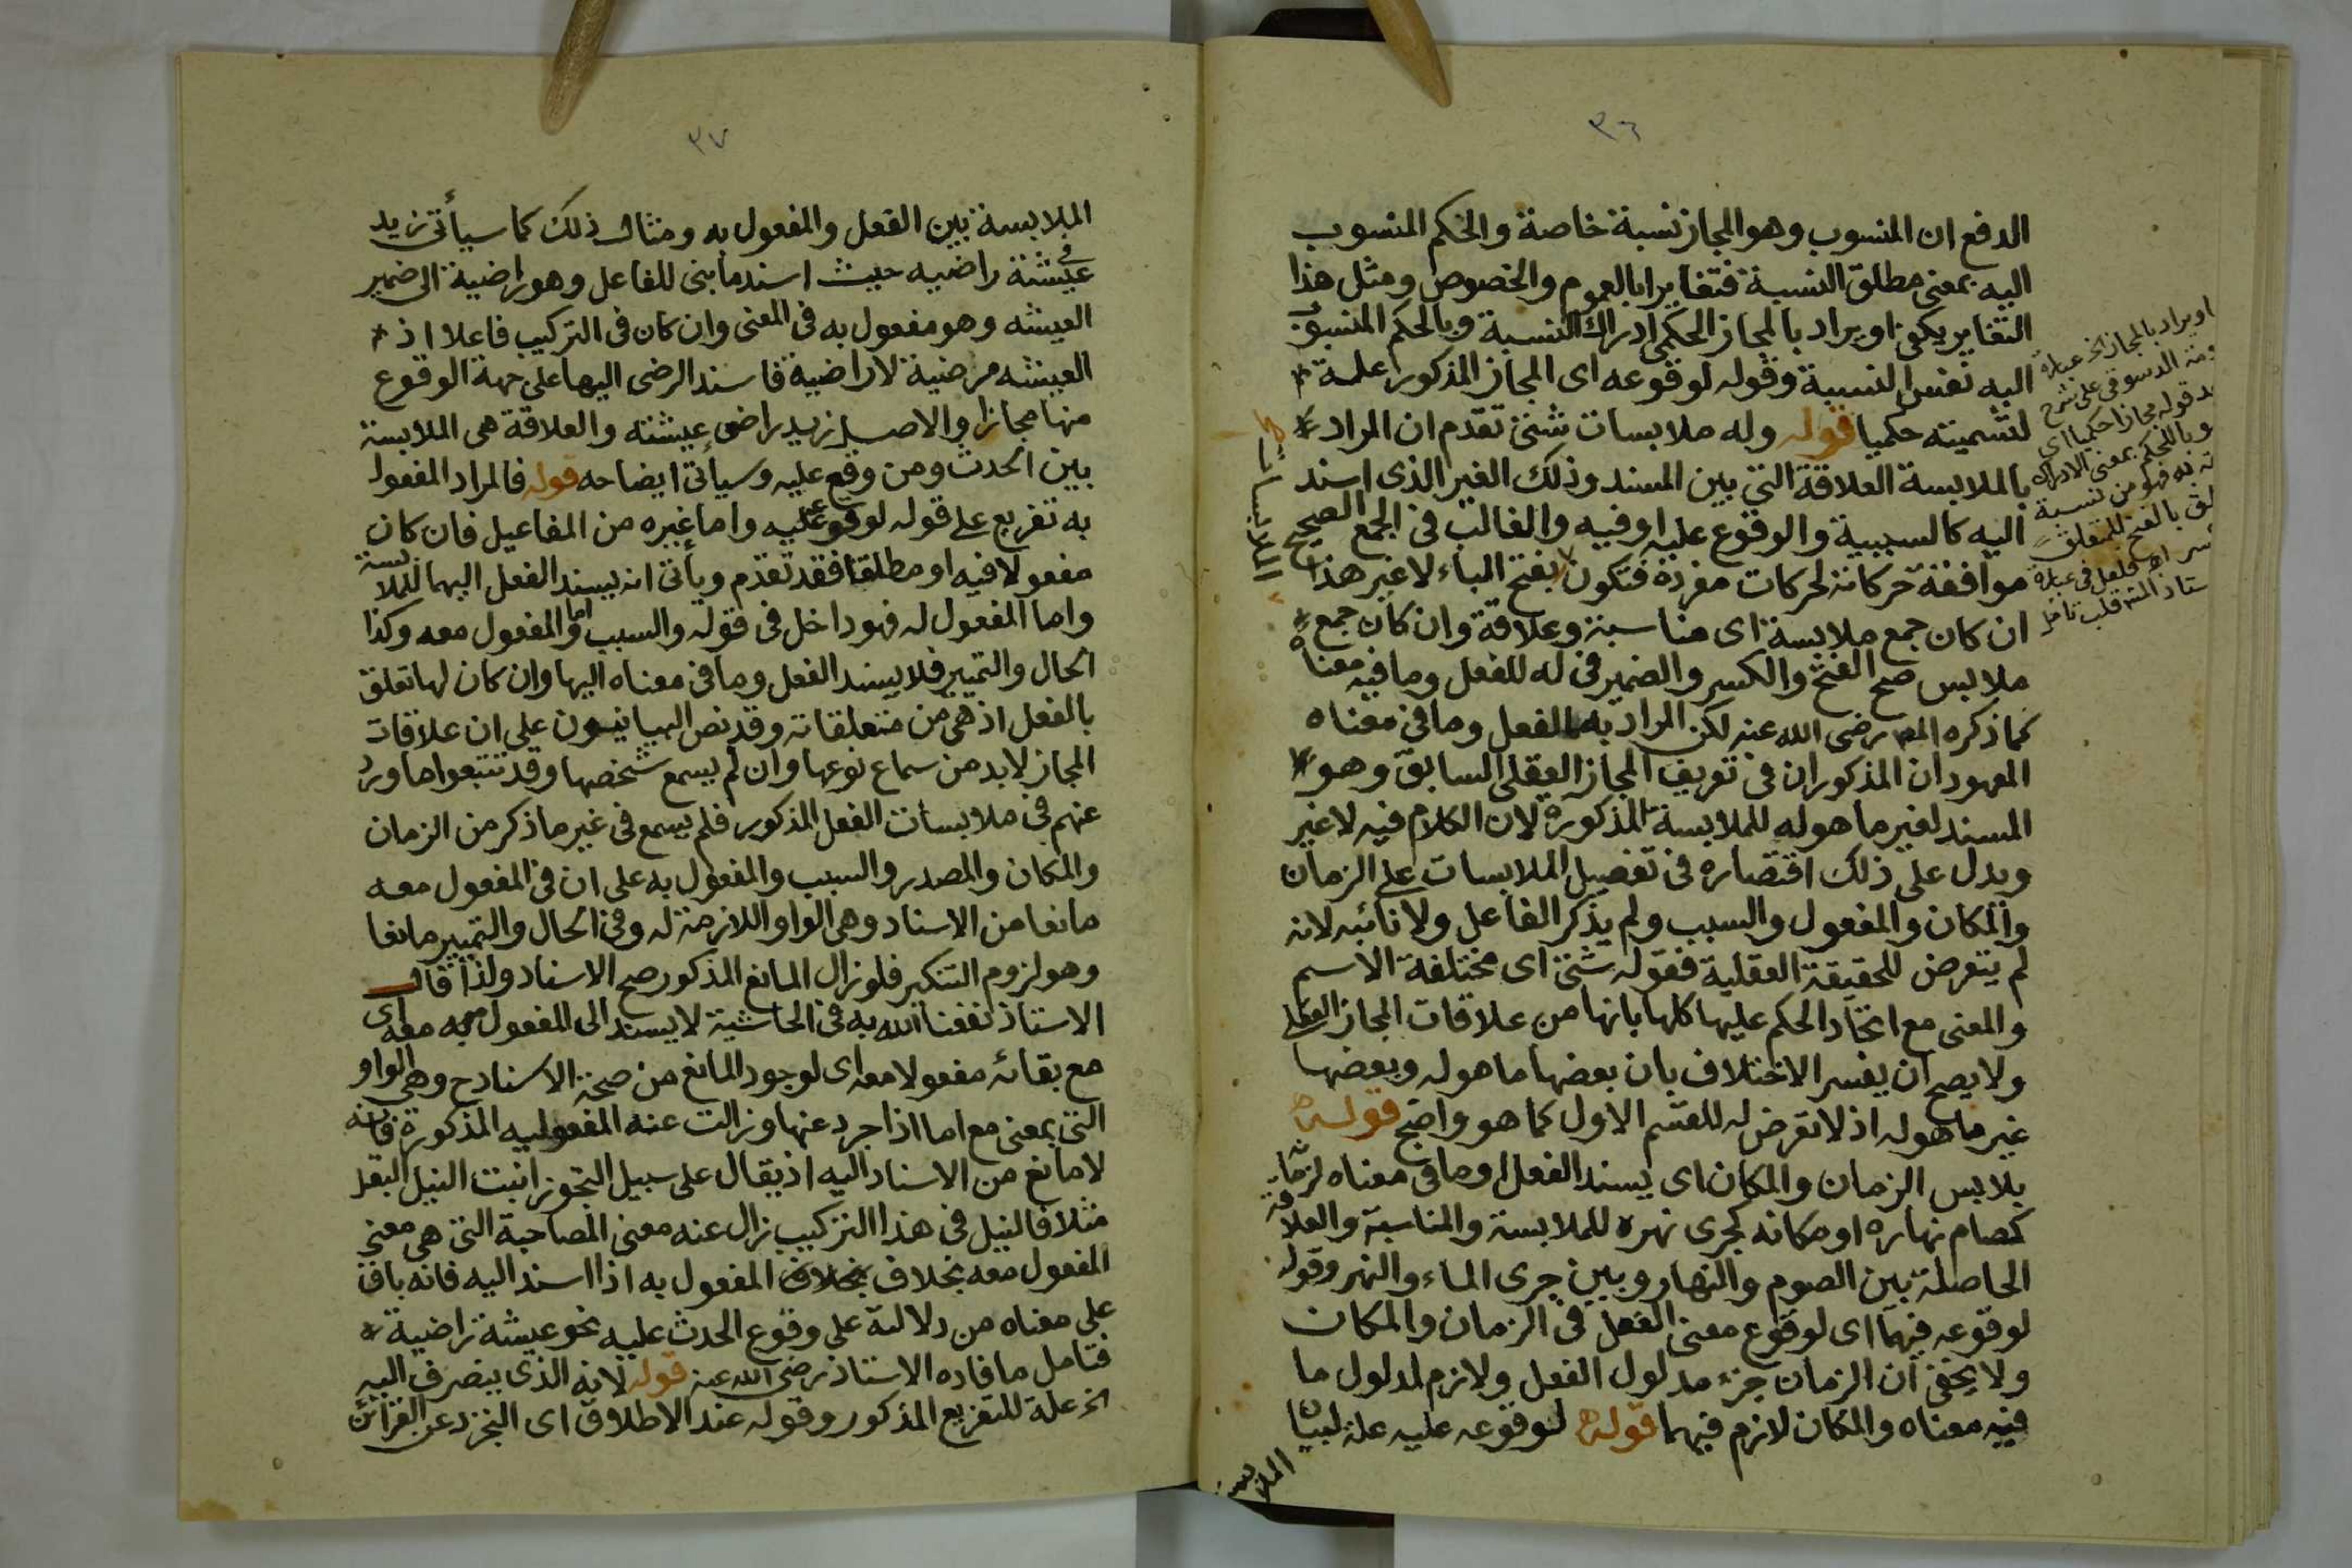 ٣٦
الدفع ان المنسوب وهو المجاز نسبة خاصة والحكم المنسوب
اليه بمعنى مطلق النسبة فتغايرا بالعموم والخصوص ومثل هذا
التغاير يكفى او يراد بالمجاز الحكمى ادراك النسبة وبالحكم المنسوب
اليه نفس النسبة وقوله لوقوعه اى المجاز المذكور علمة
لتسميته حكميا قوله وله ملابسات شتى تقدم ان المراد
بالملابسة العلاقة التى بين المسند وذلك الغير الذى اسند
اليه كالسببية والوقوع عليه او فيه والغالب فى الجمع الصحيح
موافقة حركاته لحركات مفرده فتكون بفتح الباء لا غير هذا
ان كان جمع ملابسة اى مناسبة وعلاقة وان كان جمع
ملابس صح الفتح والكسر والضمير فى له للفعل وما فيه معناه
كما ذكره المص رضى الله عنه لكن المراد بهما الفعل وما فى معناه
المعهودان المذكوران فى تعريف المجاز العقلى السابق وهو
المسند لغير ما هو له للملابسة المذكورة لان الكلام فيه لا غير
ويدل على ذلك اقتصاره فى تفصيل الملابسات على الزمان
والمكان والمفعول والسبب ولم يذكر الفاعل ولا نائبه لانه
لم يتعرض للحقيقة العقلية فقوله شتى اى مختلفة الاسم
والمعنى مع اتحاد الحكم عليها كلها بانها من علاقات المجاز العقلى
ولا يصح ان يفسر الاختلاف بان بعضها ما هو له وبعضها
غير ما هو له اذ لا تعرض له للقسم الاول كما هو واضح قوله
يلابس الزمان والمكان اى يسند الفعل او ما فى معناه لزمانه
كصام نهاره او مكانه كجرى نهره للملابسة والمناسبة والعلاقة
الحاصلة بين الصوم والنهار وبين جرى الماء والنهر وقوله
لوقوعه فيهما اى لوقوع معنى الفعل فى الزمان والمكان
ولا يخفى ان الزمان جزء مدلول الفعل ولازم لمدلول ما
فيه معناه والمكان لازم فيهما قوله لوقوعه عليه علة لبيان
الملابسة
او يراد بالمجاز الخ عبارة
الدسوقى على شرح
قوله مجازا حكميا اى
بمعنى الادراك
به فهو من نسبة
بالفتح للمتعلق
اه فلعل فى عبارة
قلب تامل
الملابسات
٣٧
الملابسة بين الفعل والمفعول به ومثال ذلك كما سيأتى زيد
فى عيشة راضيه حيث اسند ما بنى للفاعل وهو راضية الى ضمير
العيشه وهو مفعول به فى المعنى وان كان فى التركيب فاعلا اذ
العيشه مرضية لا راضية فاسند الرضى اليها على جهة الوقوع
منها مجازا والاصل زيد راضى عيشته والعلاقة هى الملابسة
بين الحدث ومن وقع عليه وسيأتى ايضاحه قوله فالمراد المفعول
به تفريع على قوله لوقوعه عليه واما غيره من المفاعيل فان كان
مفعولا فيه او مطلقا فقد تقدم ويأتى انه يسند الفعل اليهما للملابسة
واما المفعول له فهو داخل فى قوله والسبب واما المفعول معه وكذا
الحال والتمييز فلا يسند الفعل وما فى معناه اليها وان كان لها تعلق
بالفعل اذ هى من متعلقاته وقد نص البيانيون على ان علاقات
المجاز لابد من سماع نوعها وان لم يسمع شخصها وقد تتبعوا ما ورد
عنهم فى ملابسات الفعل المذكور فلم يسمع فى غير ما ذكر من الزمان
والمكان والمصدر والسبب والمفعول به على ان فى المفعول معه
مانعا من الاسناد وهى الواو اللازمة له وفى الحال والتمييز مانعا
وهو لزوم التنكير فلو زال المانع المذكور صح الاسناد ولذا قال
الاستاذ نفعنا الله به فى الحاشية لا يسند الى المفعول معه اى
مع بقائه مفعولا معه اى لوجود المانع من صحة الاسناد ح وهى الواو
التى بمعنى مع اما اذا جرد عنها وزالت عنه المفعوليه المذكورة فانه
لا مانع من الاسناد اليه اذ يقال على سبيل التجوز انبت النيل البقل
مثلا فالنيل فى هذا التركيب زال عنه معنى المصاحبة التى هى معنى
المفعول معه بخلاف بخلاف المفعول به اذا اسند اليه فانه باق
على معناه من دلالته على وقوع الحدث عليه نحو عيشة راضية
فتامل ما فاده الاستاذ رضى الله عنه قوله لانه الذى ينصرف اليه
الخ علة للتفريع المذكور وقوله عند الاطلاق اى التجرد عن القرائن